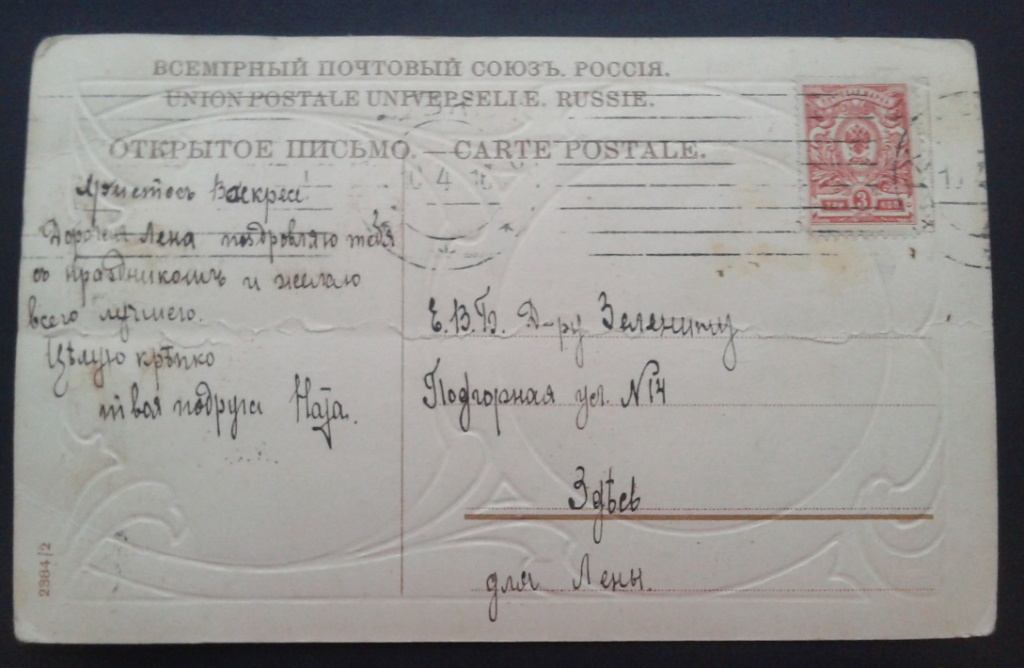 ВСЕМІРНЫЙ ПОЧТОВЫЙ СОЮЗЪ. РОССІЯ.
UNION POSTALE UNIVERSELLE. RUSSIE.
ОТКРЫТОЕ ПИСЬМО. — CARTE POSTALE.
Христосъ Воскресе!
Дорогая Лена поздровляю тебя
со праздникомъ и желаю
всего лучшего.
Цѣлую крѣпко
твоя подруга
Е. В. Б. Д-ру Зеленину
Подгорная ул. N 14
Здѣсь
для Лены.
3
ТРИ КОП
4
2384/2